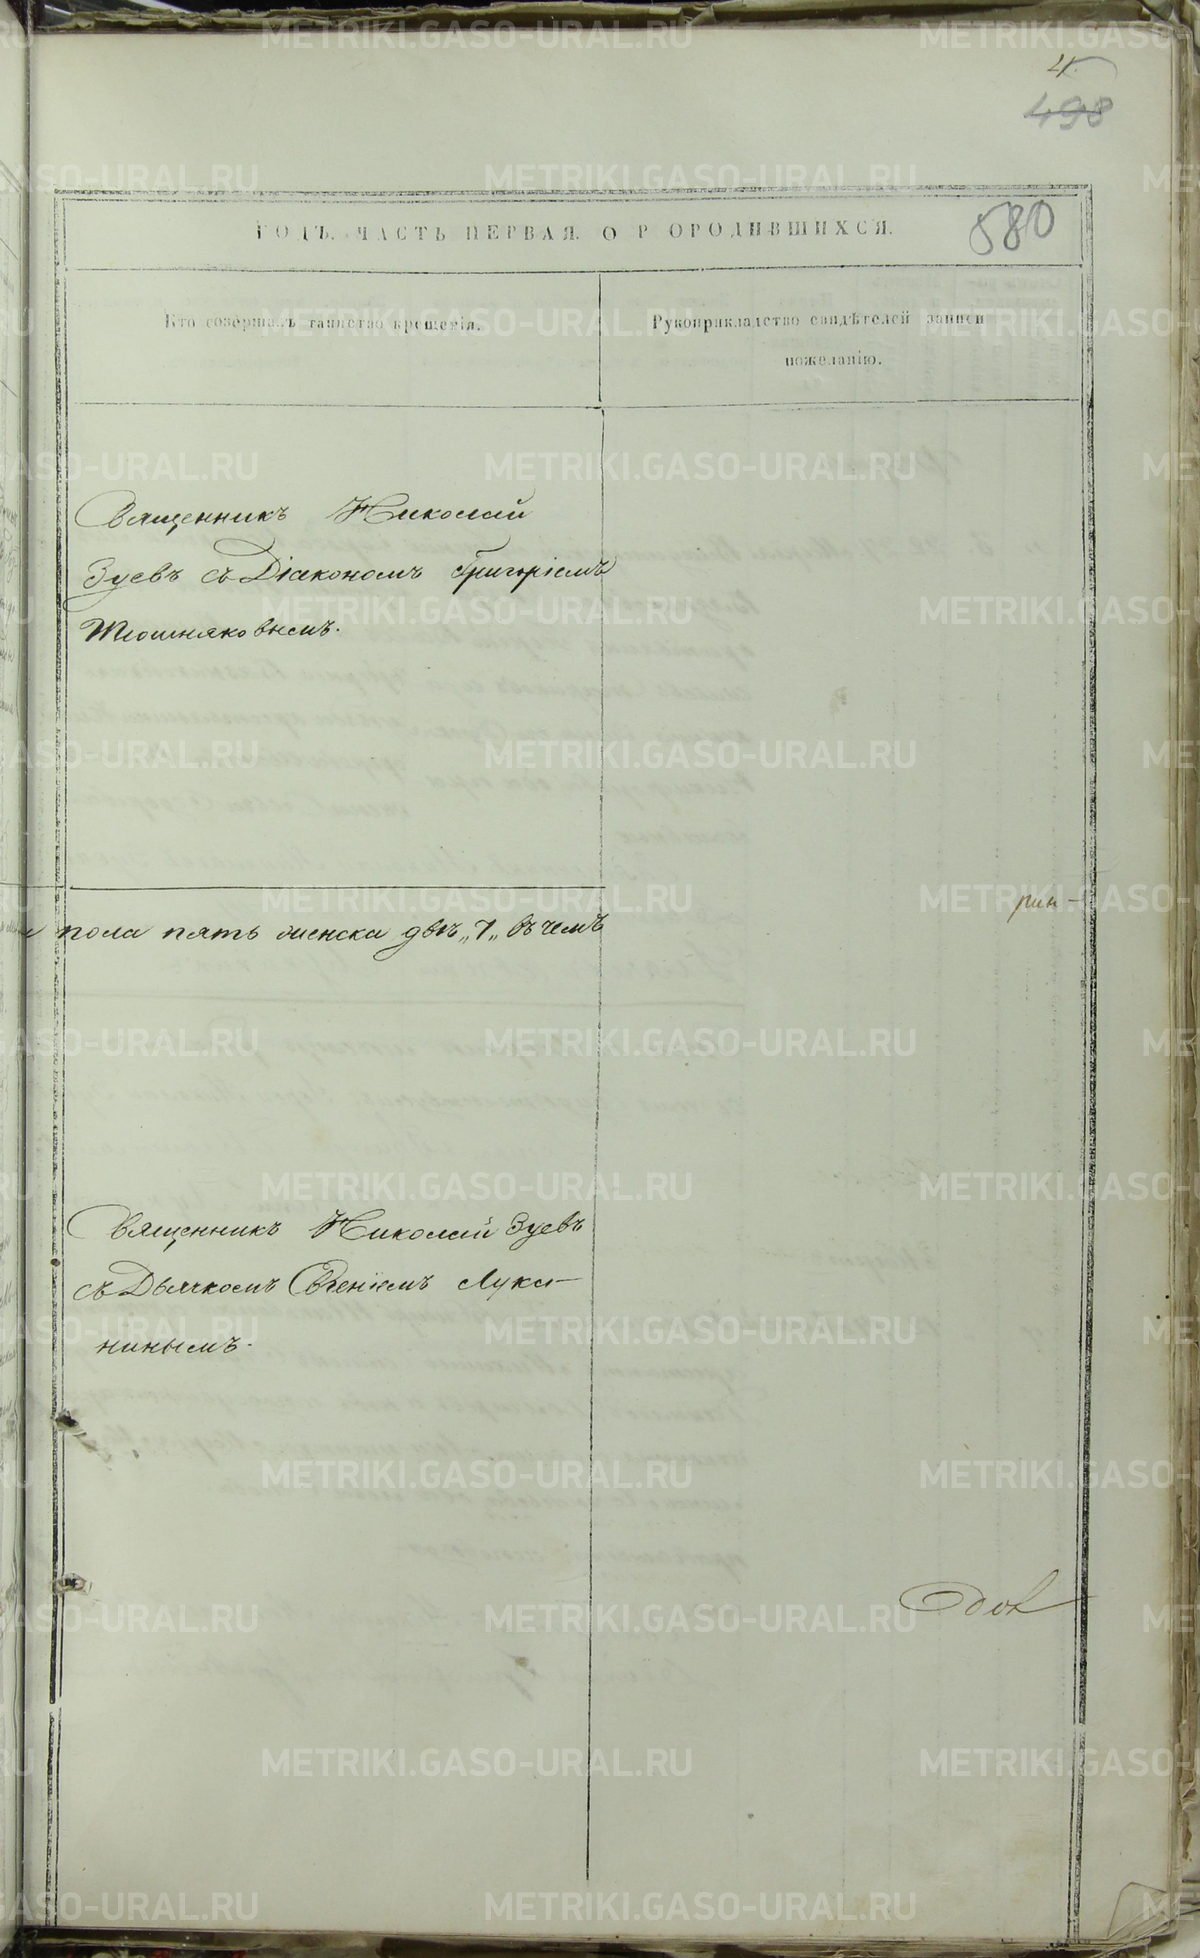 4.
498
580
ГОДЪ. ЧАСТЬ ПЕРВАЯ. О РОРОДИВШИХСЯ.
Кто совершалъ таинство крещенія.
Рукоприкладство свидѣтелей записи
пожеланію.
Священникъ Николай
Зуевъ съ Діакономъ Григоріемъ
пола пять женска двѣ „7„ въ чемъ
рин-
Священникъ Николай Зуевъ
съ Дьячкомъ Евгеніемъ Лука-
нинымъ.
METRIKI.GASO-URAL.RU